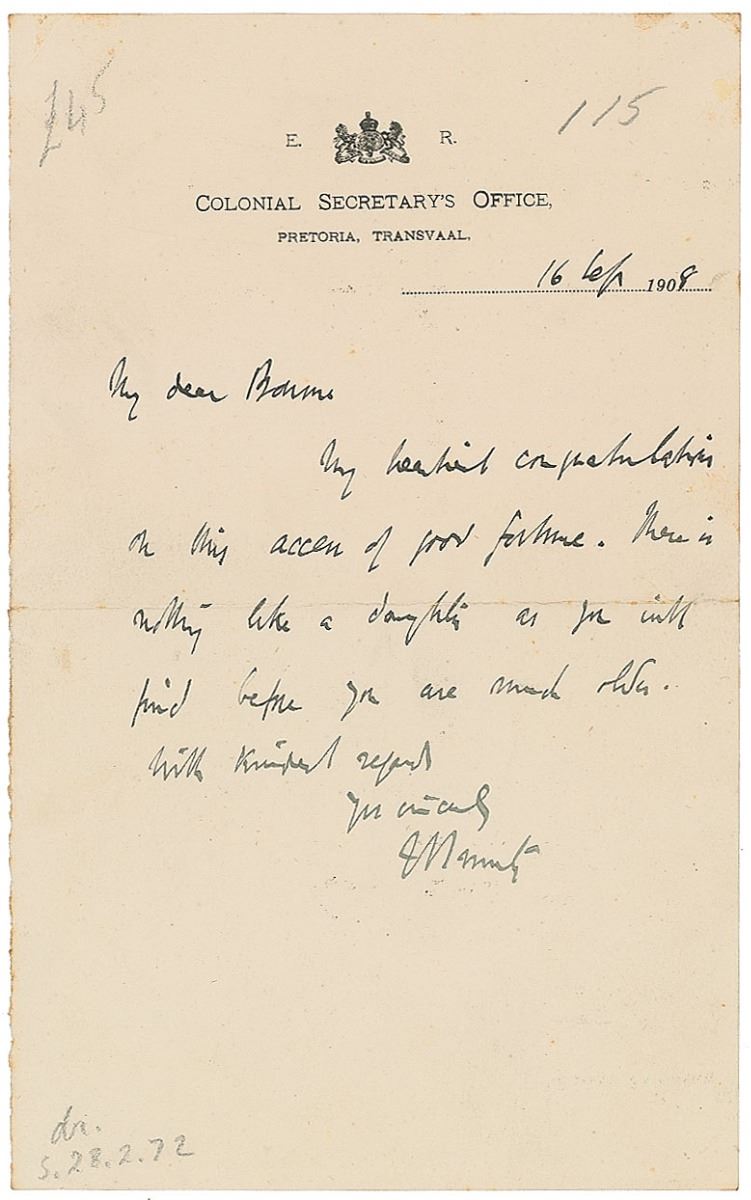 £45
115
E. R.
COLONIAL SECRETARY'S OFFICE,
PRETORIA, TRANSVAAL,
16 Sep 1908
My dear Bourne
My heartiest congratulations
on this access of good fortune. There is
nothing like a daughter as you will
find before you are much older.
With kindest regards
Yrs sincerely
J C Smuts
S.28.2.72